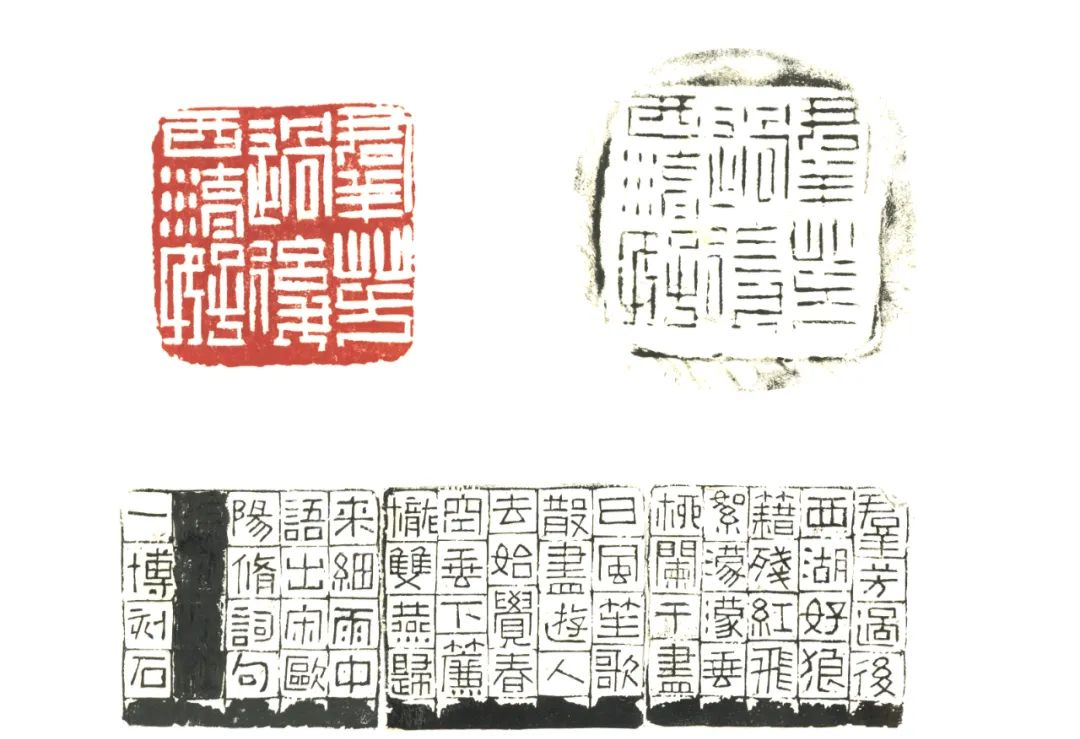 羣芳
過後
西湖好
羣芳
過後
西湖好
羣芳過後
西湖好狼
籍殘紅飛
絮濛濛垂
桺闌干盡
日風笙歌
散盡遊人
去始覺春
空垂下簾
櫳雙燕歸
来細雨中
語出宋歐
陽脩詞句
一博刻石